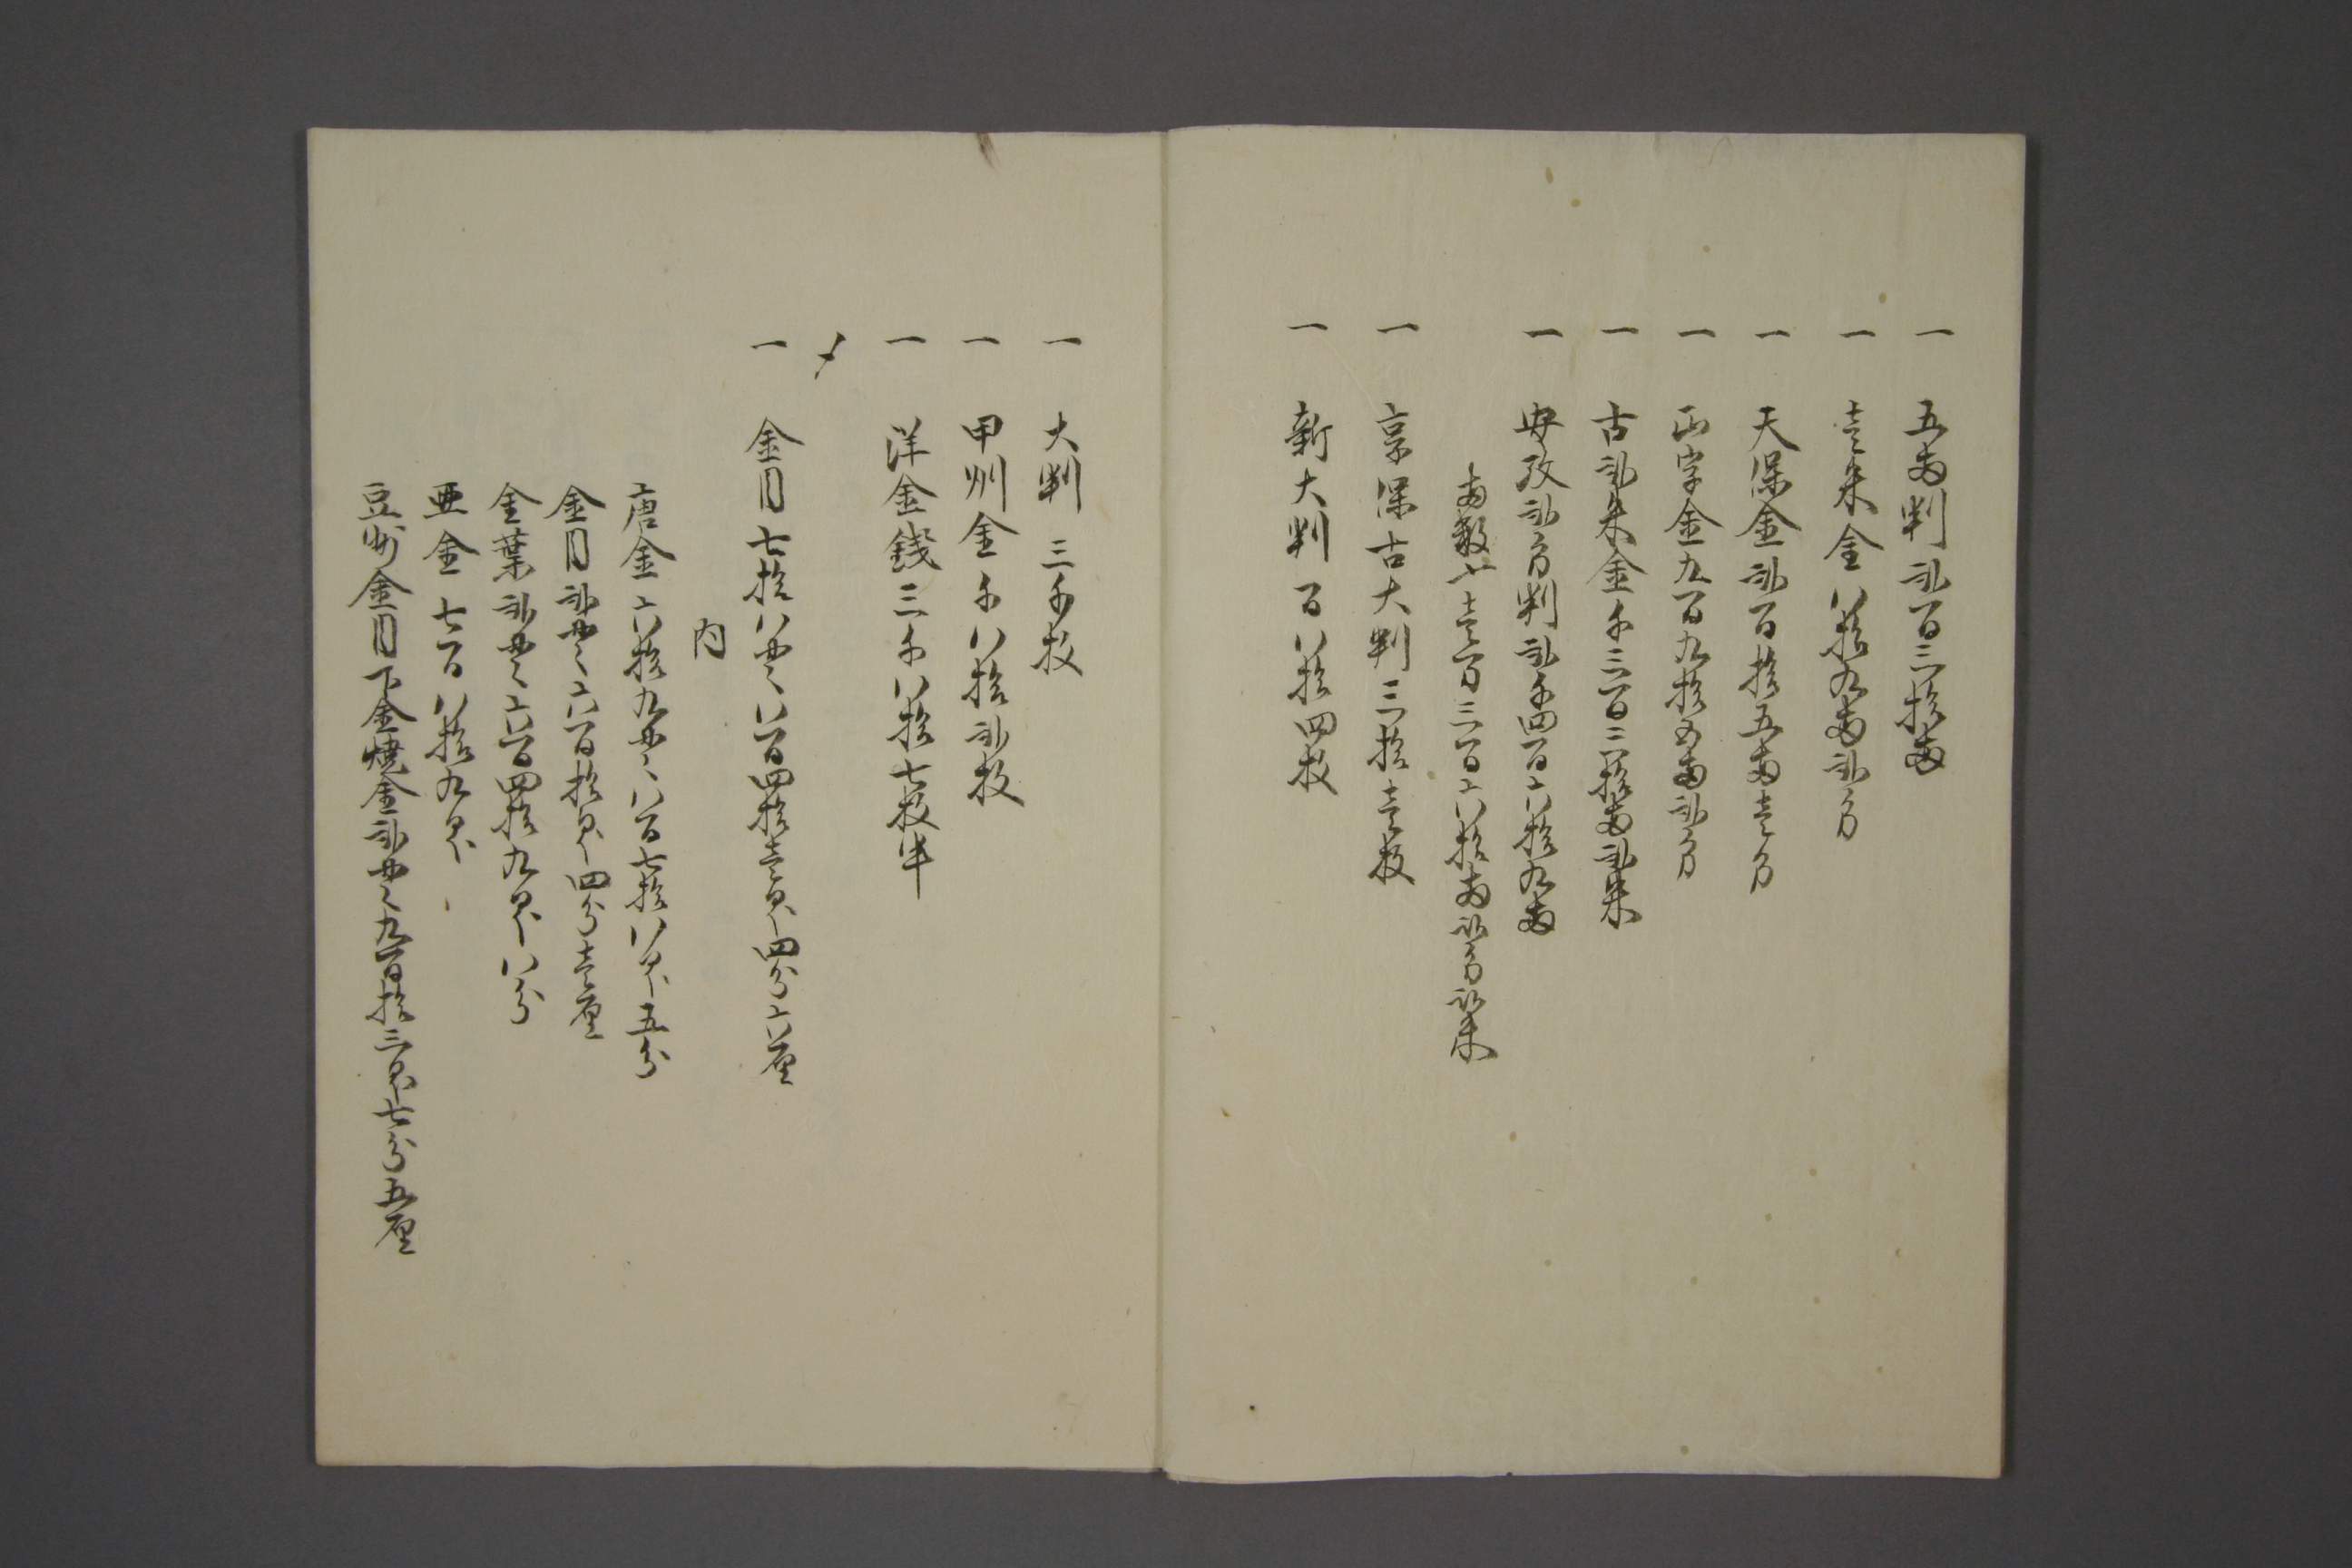 一 五両判弐百三拾両
一 壱朱金八拾九両弐分
一 天保金弐百拾五両壱分
一 正字金九百九拾五両弐分
一 古弐朱金千三百三拾両弐朱
一 安政弐分判弐千四百六拾九両
両数〆壱万三百六拾両弐分弐朱
一 享保古大判三拾壱枚
一 新大判百八拾四枚
一 大判三千枚
一 甲州金千八拾弐枚
一 洋金銭三千八拾七枚半
〆
一 金目七拾八貫八百四拾壱匁四分六厘
内
唐金六拾九貫八百七拾八匁五分
金目弐貫六百拾匁四分壱厘
金葉弐貫六百四拾九匁八分
亜金七百八拾九匁
豆州金目下金焼金弐貫九百拾三匁七分五厘